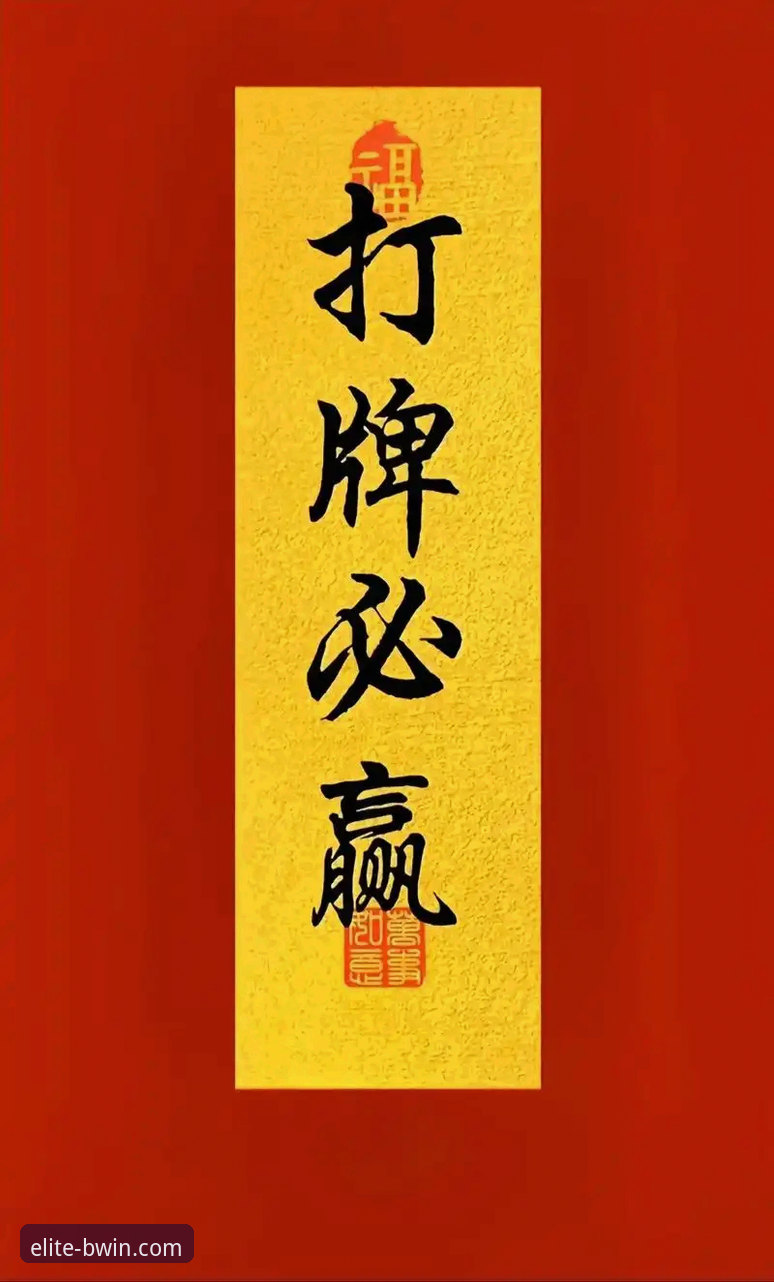 福
打牌必赢
萬事
如意
elite-bwin.com